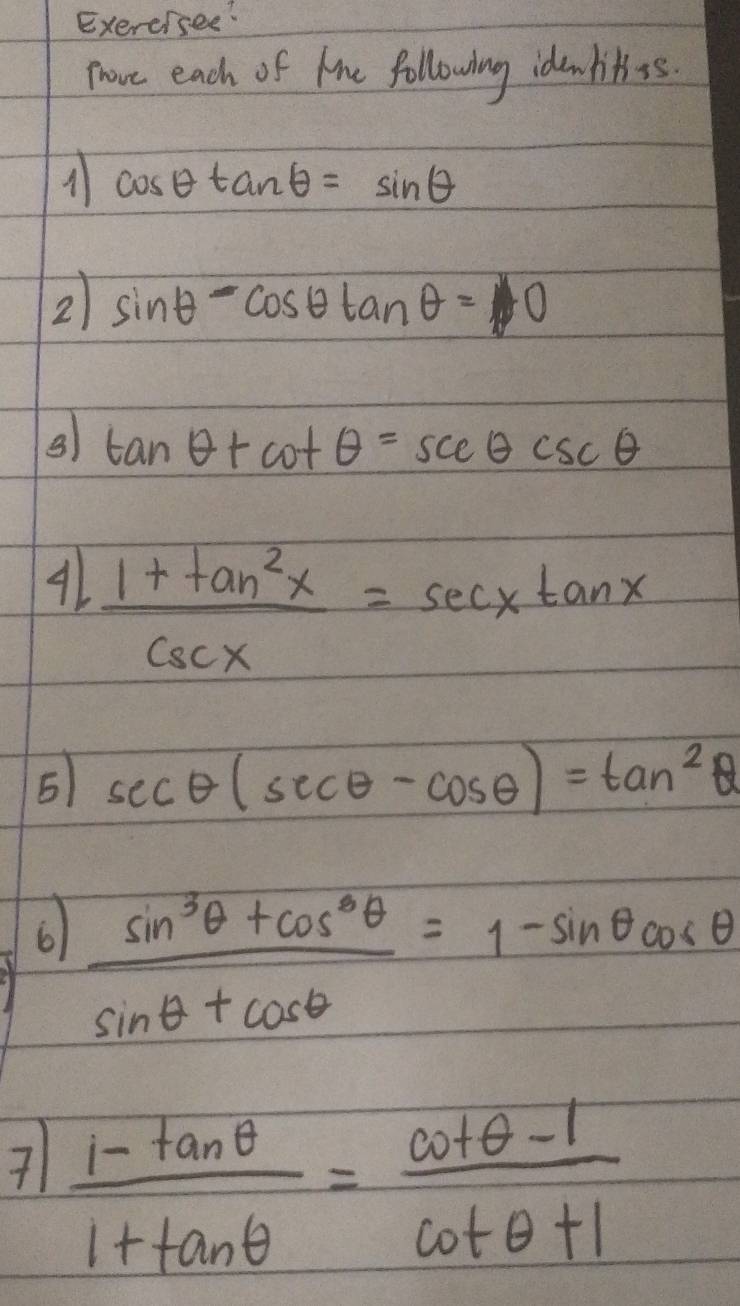 Exercises:
Prove each of the following identities.
1) cosθ tanθ = sinθ
2) sinθ - cosθ tanθ = 0
3) tan θ + cot θ = sce θ csc θ
4) 1 + tan²x / cscx = secx tanx
5) secθ (secθ - cosθ) = tan²θ
6) sin³θ + cos³θ / sinθ + cosθ = 1 - sinθ cosθ
7) 1 - tanθ / 1 + tanθ = cotθ - 1 / cotθ + 1